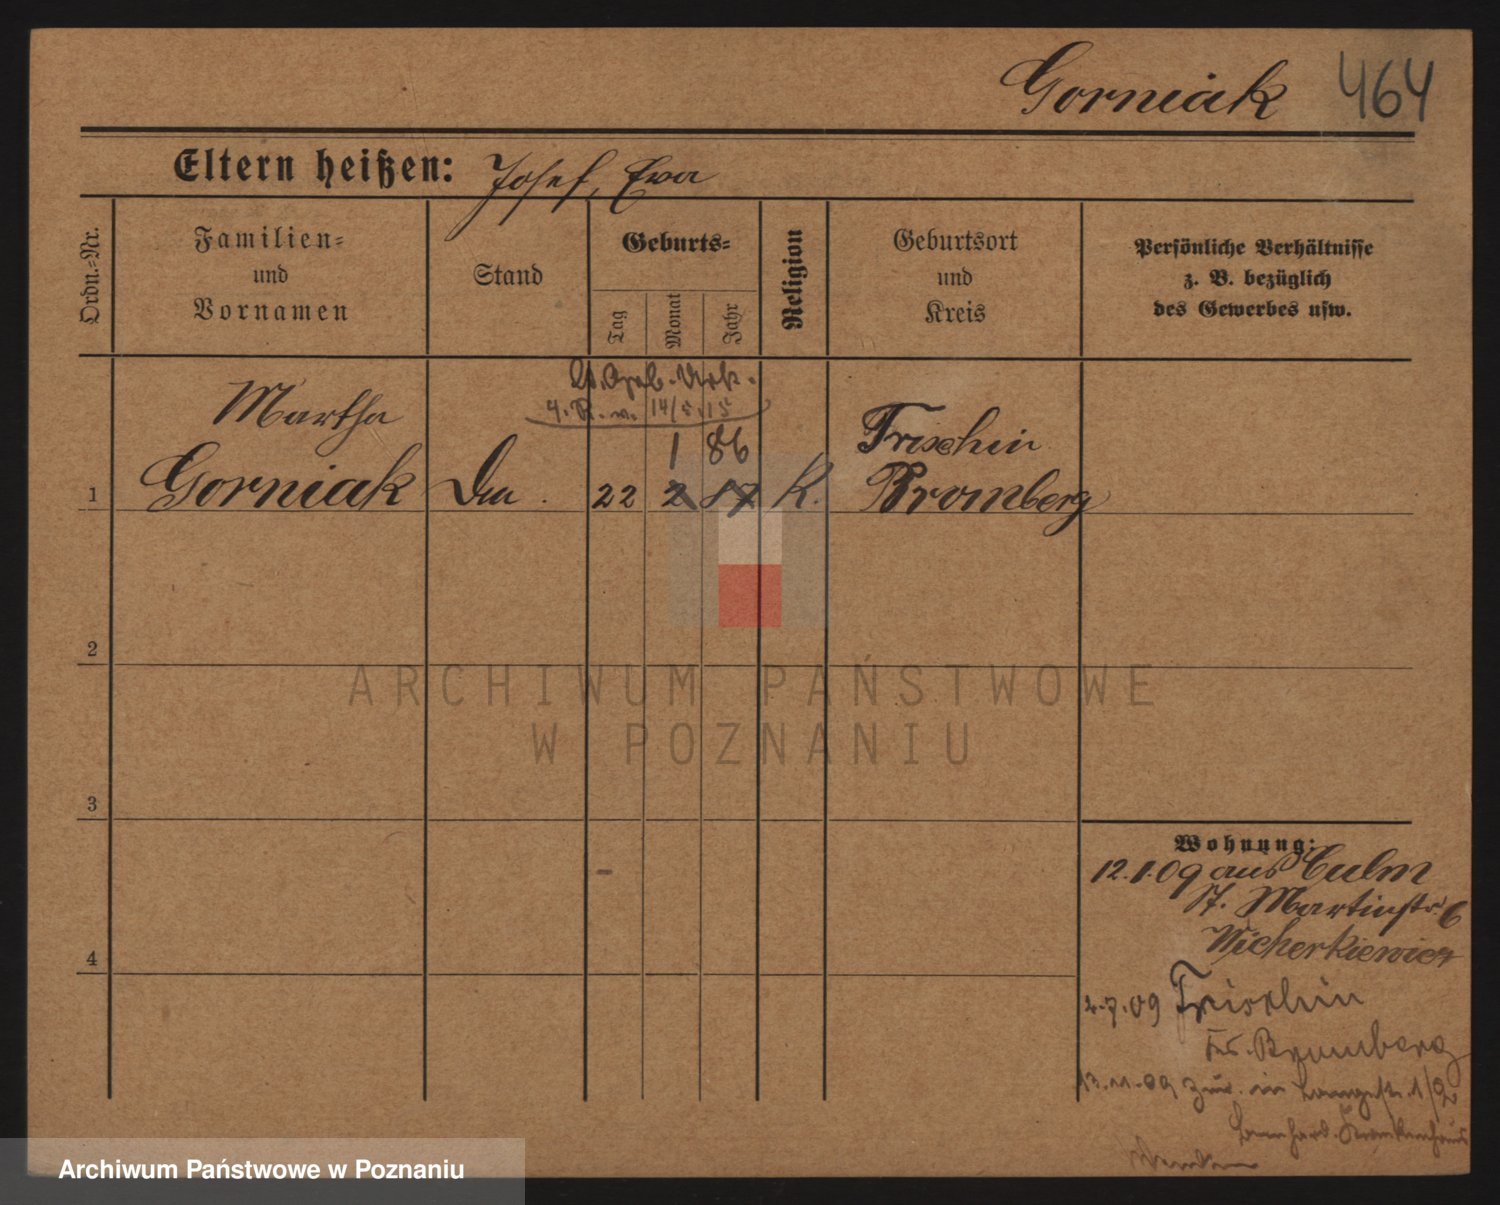 Gorniak 464
Eltern heißen: Josef, Ewa
Ordn.-Nr.
Familien-
und
Vornamen
Stand
Geburts-
Tag
Monat
Jahr
Religion
Geburtsort
und
Kreis
Persönliche Verhältnisse
z. B. bezüglich
des Gewerbes usw.
Geb. Urk.
14/5.15
1 86
Martha
Trischin
1 Gorniak 22 2 87 K. Bromberg
2
3
4
ARCHIWUM PAŃSTWOWE
W POZNANIU
Wohnung:
12.1.09 aus Culm
St. Martinstr. 6
Wicherkiewicz
4.7.09 Trischin
Bromberg
13.11.09 zur. in Langestr. 1/2
Krankenhaus
Archiwum Państwowe w Poznaniu